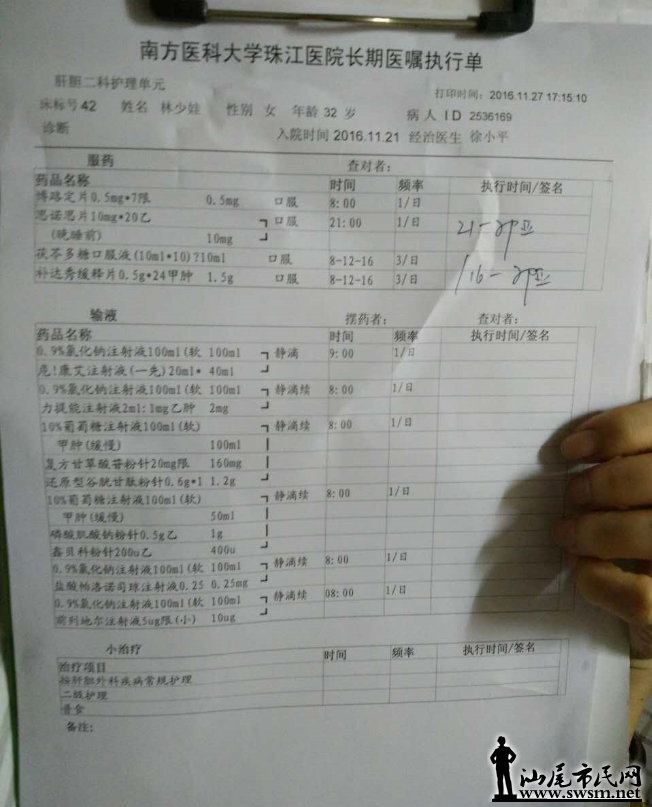 南方医科大学珠江医院长期医嘱执行单
肝胆二科护理单元
打印时间: 2016.11.27 17:15:10
床标号 42 姓名 林少娃 性别 女 年龄 32 岁 病人 ID 2536169
诊断 入院时间 2016.11.21 经治医生 徐小平
服药 查对者:
药品名称 时间 频率 执行时间/签名
博路定片0.5mg*7限 0.5mg 口服 8:00 1/日
思诺思片10mg*20乙 口服 21:00 1/日 21-
(晚睡前) 10mg
茯苓多糖口服液(10ml*10)?10ml 口服 8-12-16 3/日 /16-
补达秀缓释片0.5g*24甲肿 1.5g 口服 8-12-16 3/日
输液 摆药者: 查对者:
药品名称 时间 频率 执行时间/签名
0.9%氯化钠注射液100ml(软 100ml 静滴 9:00 1/日
危!康艾注射液(一先)20ml* 40ml
0.9%氯化钠注射液100ml(软 100ml 静滴续 8:00 1/日
力提能注射液2ml:1mg乙肿 2mg
10%葡萄糖注射液100ml(软) 静滴续 8:00 1/日
甲肿(缓慢) 100ml
复方甘草酸苷粉针20mg限 160mg
还原型谷胱甘肽粉针0.6g*1 1.2g
10%葡萄糖注射液100ml(软) 静滴续 8:00 1/日
甲肿(缓慢) 50ml
磷酸肌酸钠粉针0.5g乙 1g
鑫贝科粉针200u乙 400u
0.9%氯化钠注射液100ml(软 100ml 静滴续 8:00 1/日
盐酸帕洛诺司琼注射液0.25 0.25mg
0.9%氯化钠注射液100ml(软 100ml 静滴续 08:00 1/日
前列地尔注射液5ug限(小) 10ug
小治疗
治疗项目 时间 频率 执行时间/签名
按肝胆外科疾病常规护理
二级护理
普食
备注:
汕尾市民网
www.swsm.net